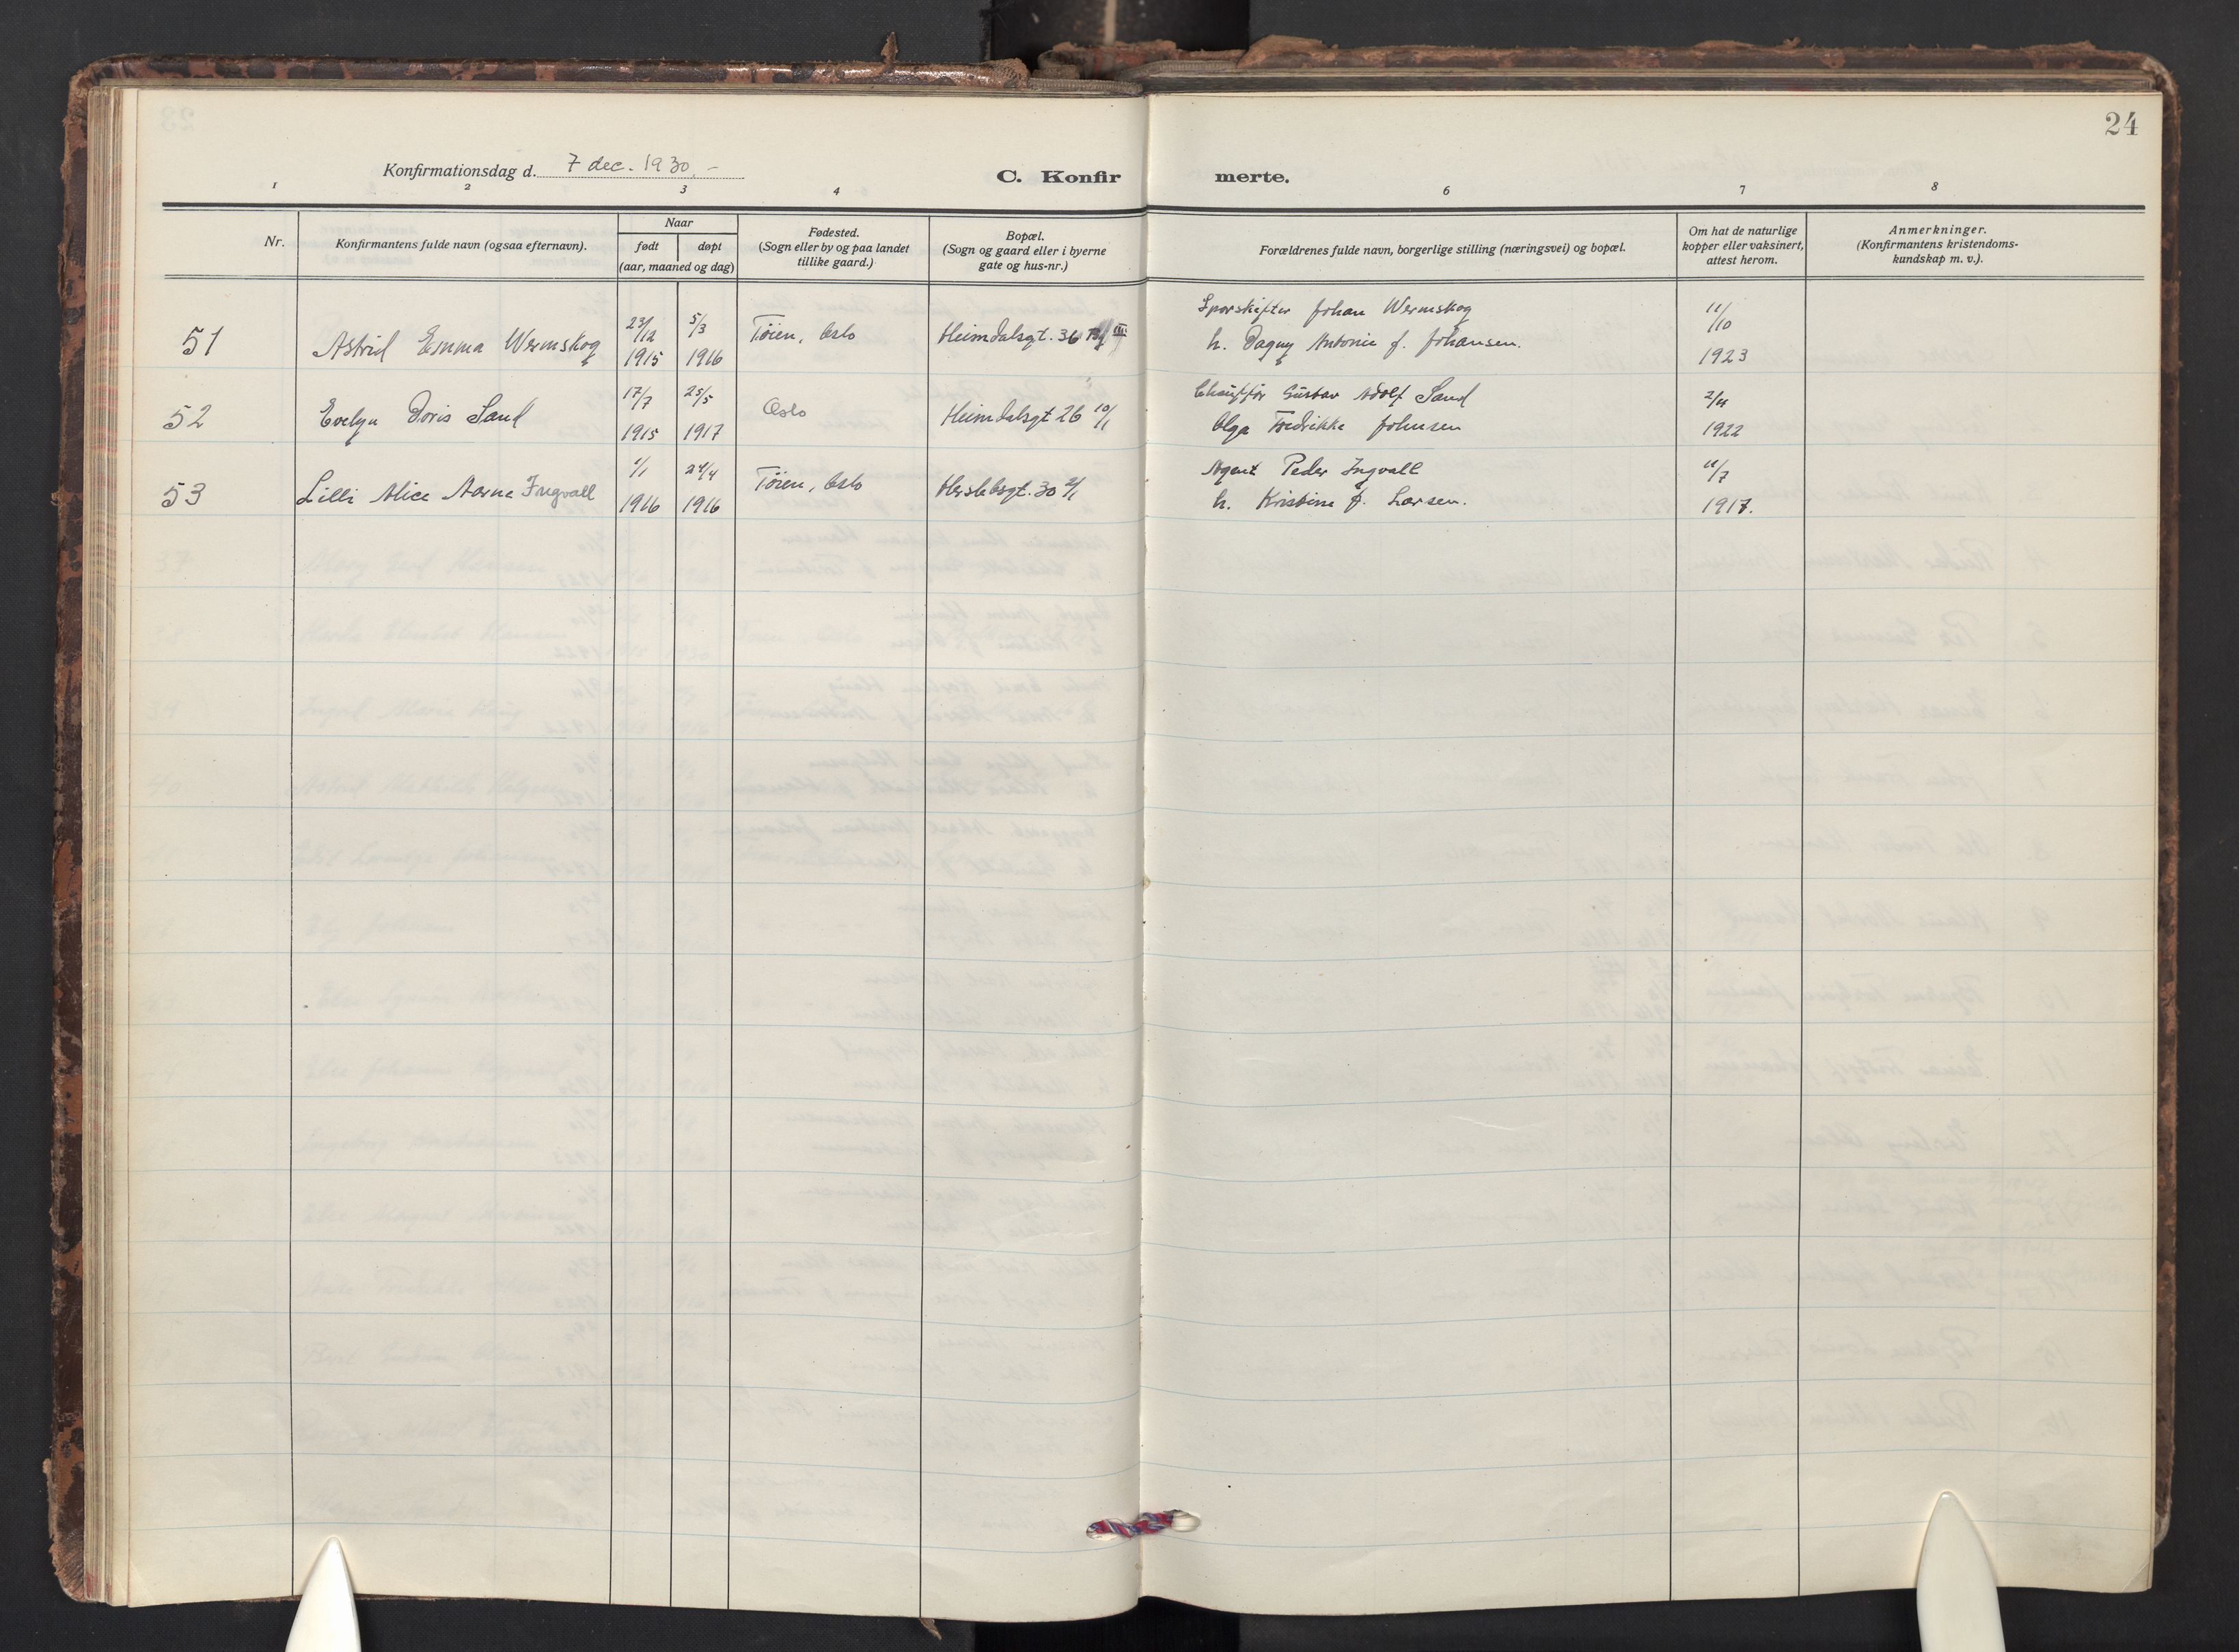 24
Konfirmationsdag d. 7 dec. 1930. -
C. Konfir merte.
1 2 3 4 6 7 8
Nr.
Konfirmantens fulde navn (ogsaa efternavn).
Naar
født døpt
(aar, maaned og dag)
Fødested.
(Sogn eller by og paa landet
tillike gaard.)
Bopæl.
(Sogn og gaard eller i byerne
gate og hus-nr.)
Forældrenes fulde navn, borgerlige stilling (næringsvei) og bopæl.
Om hat de naturlige
kopper eller vaksinert,
attest herom.
Anmerkninger.
(Konfirmantens kristendoms-
kundskap m. v.).
51 Astrid Emma Wermskog 23/12 1915 5/3 1916 Tøien, Oslo Heimdalsgt. 36 III
Sporskifter Johan Wermskog
h. Dagny Antonie f. Johansen.
11/10
1923
52 Evelyn Doris Sand 17/7 1915 25/5 1917 Oslo Heimdalsgt 26 10/1
Chauffør Gustav Adolf Sand
Olga Fredrikke Johnsen
1922
53 Lilli Alice Aarne Ingvall 1/1 1916 24/4 1916 Tøien, Oslo Herslebsgt. 30 2/1
Agent Peder Ingvall
h. Kristine f. Larsen.
1917.